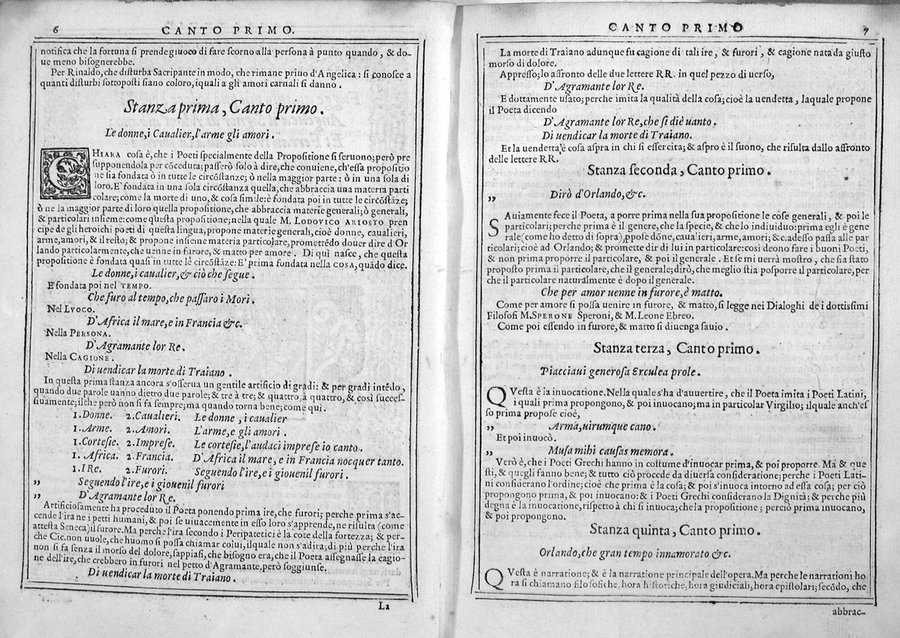 6
CANTO PRIMO.
notifica che la fortuna si prende giuoco di fare scorno alla persona à punto quando, & do-
ue meno bisognerebbe.
Per Rinaldo, che disturba Sacripante in modo, che rimane priuo d'Angelica: si conosce a
quanti disturbi sottoposti siano coloro, iquali a gli amori carnali si danno.
Stanza prima, Canto primo.
Le donne, i Caualier, l'arme gli amori.
CHIARA cosa è, che i Poeti specialmente della Propositione si seruono; però pre
supponendola per cōceduta; passerò solo à dire, che conuiene, ch'essa propositio
ne sia fondata ò in tutte le circōstāze; ò nella maggior parte: ò in una sola di
loro. E' fondata in una sola circōstāza quella, che abbraccia una materia parti
colare; come la morte di uno, & cosa simile: è fondata poi in tutte le circōstāze;
ò ne la maggior parte di loro quella propositione, che abbraccia materie generali; ò generali,
& particolari insieme: come questa propositione; nella quale M. LODOVICO ARIOSTO pren
cipe de gli heroichi poeti di questa lingua, propone materie generali, cioè donne, caualieri,
arme, amori, & il resto; & propone insieme materia particolare, promettēdo douer dire d'Or
lando particolarmente, che uenne in furore, & matto per amore. Di quì nasce, che questa
propositione è fondata quasi in tutte le circōstāze: E' prima fondata nella cosa, quādo dice.
Le donne, i caualier, & ciò che segue.
E' fondata poi nel TEMPO.
Che furo al tempo, che passaro i Mori.
Nel LVOCO.
D'Africa il mare, e in Francia &c.
Nella PERSONA.
D'Agramante lor Re.
Nella CAGIONE.
Di uendicar la morte di Traiano.
In questa prima stanza ancora s'osserua un gentile artificio di gradi: & per gradi intēdo,
quando due parole uanno dietro due parole; & tre à tre; & quattro à quattro, & così succes-
siuamente; ilche però non si fa sempre; ma quando torna bene; come qui.
1. Donne. 2. Caualieri. Le donne, i caualier
1. Arme. 2. Amori. L'arme, e gli amori.
1. Cortesie. 2. Imprese. Le cortesie, l'audaci imprese io canto.
1. Africa. 2. Francia. D'Africa il mare, e in Francia nocquer tanto.
1. IRe. 2. Furori. Seguendo l'ire, e i giouenil furori.
" Seguendo l'ire, e i giouenil furori
" D'Agramante lor Re.
Artificiosamente ha proceduto il Poeta ponendo prima ire, che furori; perche prima s'ac-
cende l'ira ne i petti humani, & poi se uiuacemente in esso loro s'apprende, ne risulta (come
attesta Seneca) il furore. Ma perche l'ira secondo i Peripatetici è la cote della fortezza; & per-
che Cic. non uuole, che huomo si possa chiamar colui, ilquale non s'adira; di più perche l'ira
non si fa senza il morso del dolore, sappiasi, che bisogno era, che il Poeta assegnasse la cagio-
ne dell'ire, che crebbero in furori nel petto d'Agramante, però soggiunse.
Di uendicar la morte di Traiano.
La
CANTO PRIMO
7
La morte di Traiano adunque fu cagione di tali ire, & furori, & cagione nata da giusto
morso di dolore.
Appresso; lo affronto delle due lettere RR. in quel pezzo di uerso,
D'Agramante lor Re.
E' dottamente usato; perche imita la qualità della cosa; cioè la uendetta, laquale propone
il Poeta dicendo
D'Agramante lor Re, che si diè uanto.
Di uendicar la morte di Traiano.
Et la uendetta è cosa aspra in chi si essercita; & aspro è il suono, che risulta dallo affronto
delle lettere RR.
Stanza seconda, Canto primo.
" Dirò d'Orlando, &c.
SAuiamente fece il Poeta, a porre prima nella sua propositione le cose generali, & poi le
particolari; perche prima è il genere, che la specie, & che lo indiuiduo: prima egli è gene
rale (come ho detto di sopra), ppose dōne, caualieri, arme, amori; &c. adesso passa alle par
ticolari; cioè ad Orlando; & promette dir di lui in particolare: così deono fare i buoni Poeti,
& non prima proporre il particolare, & poi il generale. Et se mi uerrà mostro, che sia stato
proposto prima il particolare, che il generale; dirò, che meglio stia posporre il particolare, per
che il particolare naturalmente è dopo il generale.
Che per amor uenne in furore, è matto.
Come per amore si possa uenire in furore, & matto, si legge nei Dialoghi de i dottissimi
Filosofi M. SPERONE Speroni, & M. Leone Ebreo.
Come poi essendo in furore, & matto si diuenga sauio.
Stanza terza, Canto primo.
Piacciaui generosa Erculea prole.
QVesta è la inuocatione. Nella quale s'ha d'auuertire, che il Poeta imita i Poeti Latini,
i quali prima propongono, & poi inuocano; ma in particolar Virgilio; ilquale anch'es
so prima propose cioè,
" Arma, uirumque cano.
Et poi inuocò.
" Musa mihi causas memora.
Vero è, che i Poeti Grechi hanno in costume d'inuocar prima, & poi proporre. Ma & que
sti, & quegli fanno bene; & tutto ciò procede da diuersa consideratione; perche i Poeti Lati-
ni considerano l'ordine; cioè che prima è la cosa; & poi s'inuoca intorno ad essa cosa; per ciò
propongono prima, & poi inuocano: & i Poeti Grechi considerano la Dignità; & perche più
degna è la inuocatione, rispetto à chi si inuoca; che la propositione; perciò prima inuocano,
& poi propongono.
Stanza quinta, Canto primo.
Orlando, che gran tempo innamorato &c.
QVesta è narratione; & è la narratione principale dell'opera. Ma perche le narrationi ho
ra si chiamano filosofiche, hora historiche, hora giudiciali, hora epistolari; secōdo, che
abbrac-